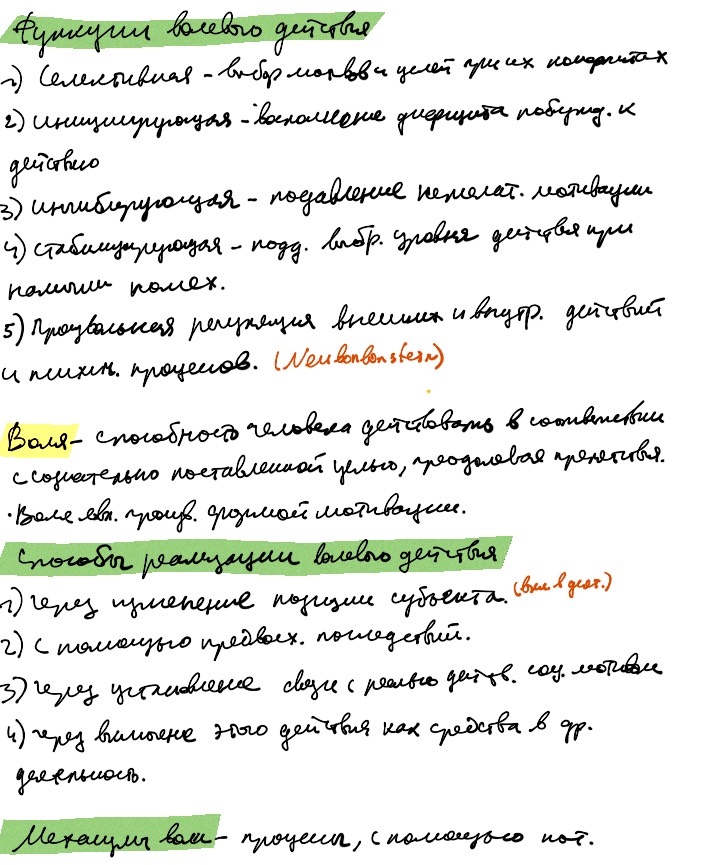 Функции волевого действия
1) Селективная - выбор мотивов и целей при их конфликтах
2) Инициирующая - восполнение дефицита побужд. к
действию
3) Ингибирующая - подавление нежелат. мотивации
4) стабилизирующая - подд. выбр. уровня действия при
помех.
5) Произвольная регуляция внешних и внутр. действий
и психич. процессов.
Воля - способность человека действовать в соответствии
с сознательно поставленной целью, преодолевая препятствия.
· Воля явл. произв. формой мотивации.
Способы реализации волевого действия
1) Через изменение позиции субъекта. (вкл. в деят.)
2) С помощью предвосх. последствий.
3) Через установление связи с реально действ. соц. мотивами
4) Через включение этого действия как средства в др.
деятельность.
Механизмы воли - процессы, с помощью кот.